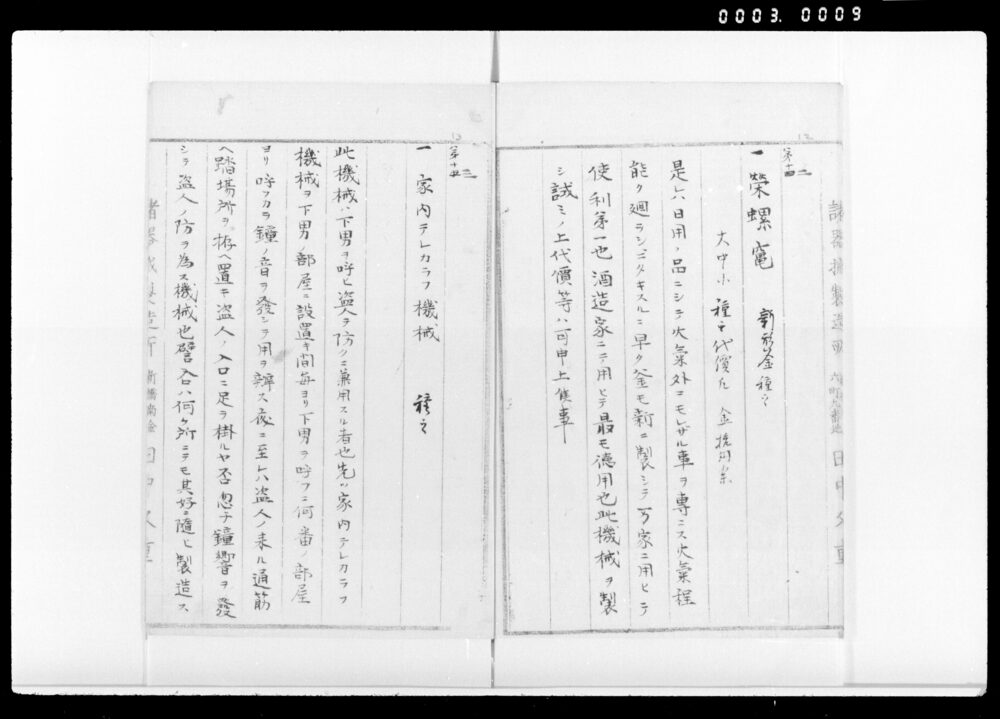 0003.0009
12
第十四
一 榮螺竃 新形釜種之
大中小種之代價凡金
是レハ日用ノ品ニシテ火氣外ニモレザル事ヲ專ニス火氣程
能ク廻ランニタキスルニ早ク釜モ新ニ製シテ万家ニ用ヒテ
使利第一也酒造家ニテ用ヒテ最モ德用也此機械ヲ製
シ試ミノ上代價等ハ可申上候事
12
第十五
一 家内テレカラフ機械 種之
此機械ハ下男ヲ呼ヒ盗人ヲ防クニ兼用スル者也先ツ家内テレカラフ
機械ヲ下男ノ部屋ニ設置キ間毎ヨリ下男ヲ呼フニ何番ノ部屋
ヨリ呼フカヲ鐘ノ音ヲ發シテ用ヲ辨ス夜ニ至レハ盗人ノ来ル通筋
ヘ踏場所ヲ拵ヘ置キ盗人ノ入口ニ足ヲ掛ルヤ否忽チ鐘響ヲ發
シテ盗人ノ防ヲ為ス機械也譬合ハ何ケ所ニテモ其好ニ隨ヒ製造ス